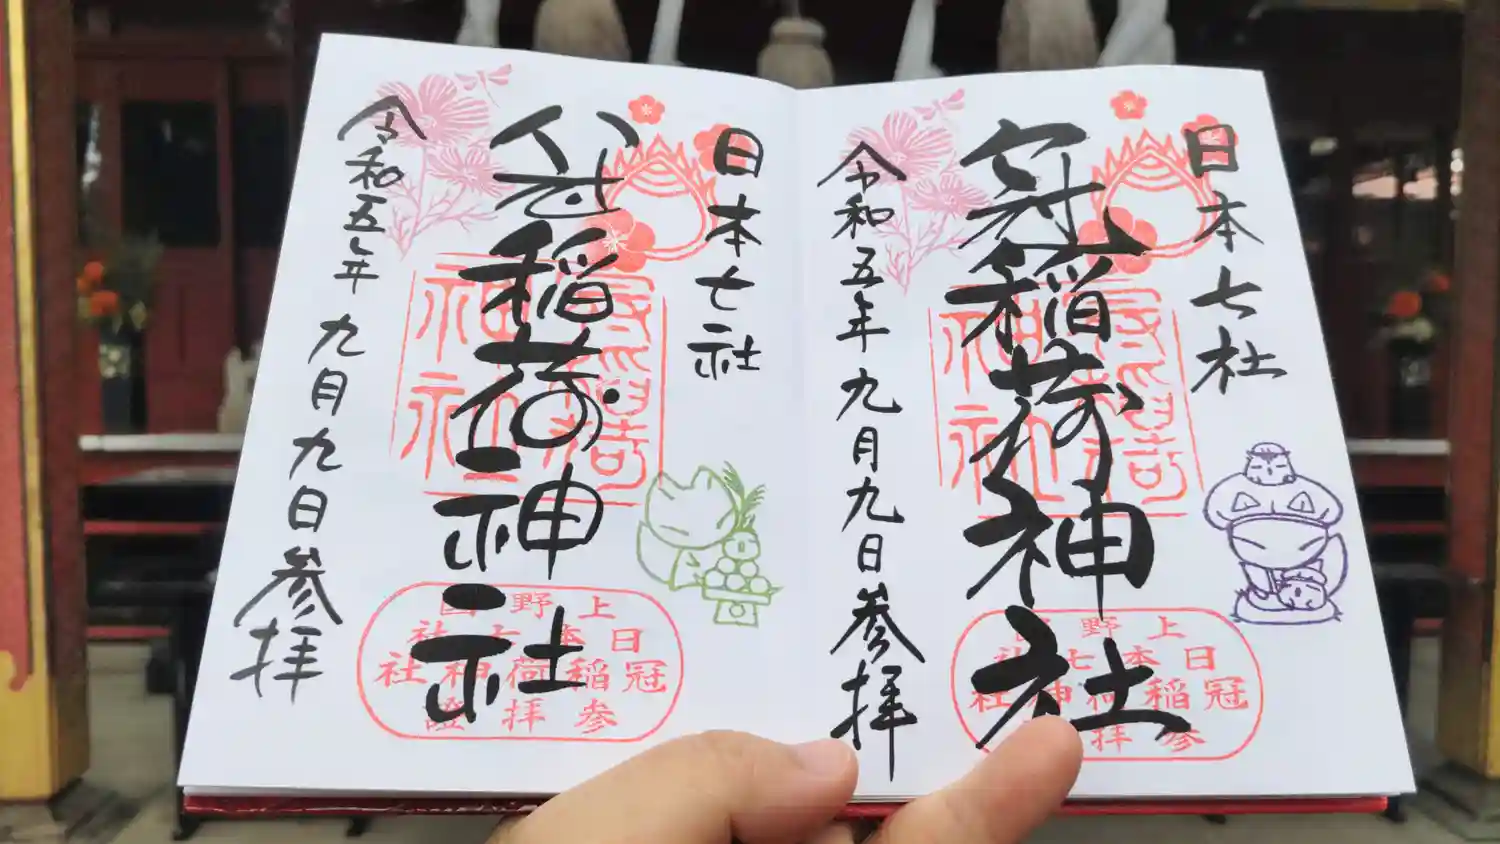 日本七社
冠稲荷神社
令和五年九月九日参拝
上野
日本七社
冠稲荷神社
参拝
日本七社
冠稲荷神社
令和五年九月九日参拝
上野国
日本七社
冠稲荷神社
参拝證